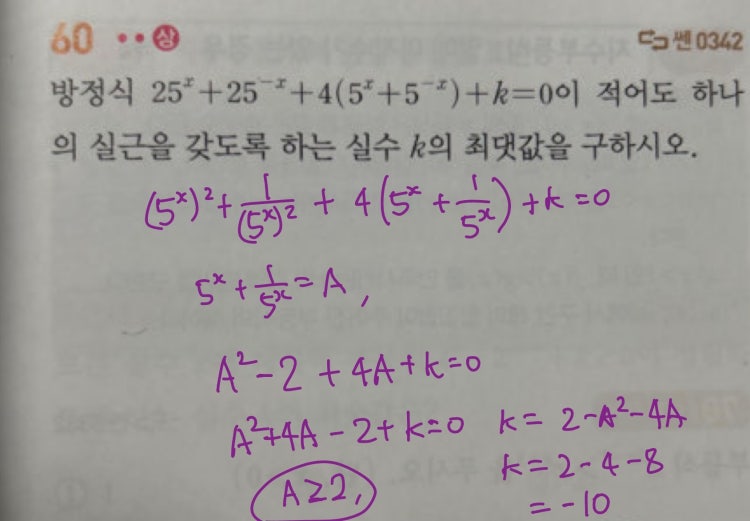 60 상 쎈 0342
방정식 25^x+25^{-x}+4(5^x+5^{-x})+k=0이 적어도 하나
의 실근을 갖도록 하는 실수 k의 최댓값을 구하시오.
(5^x)^2+\frac{1}{(5^x)^2} + 4(5^x+\frac{1}{5^x})+k=0
5^x+\frac{1}{5^x}=A,
A^2-2+4A+k=0
A^2+4A-2+k=0 k=2-A^2-4A
A≥2, k=2-4-8
=-10